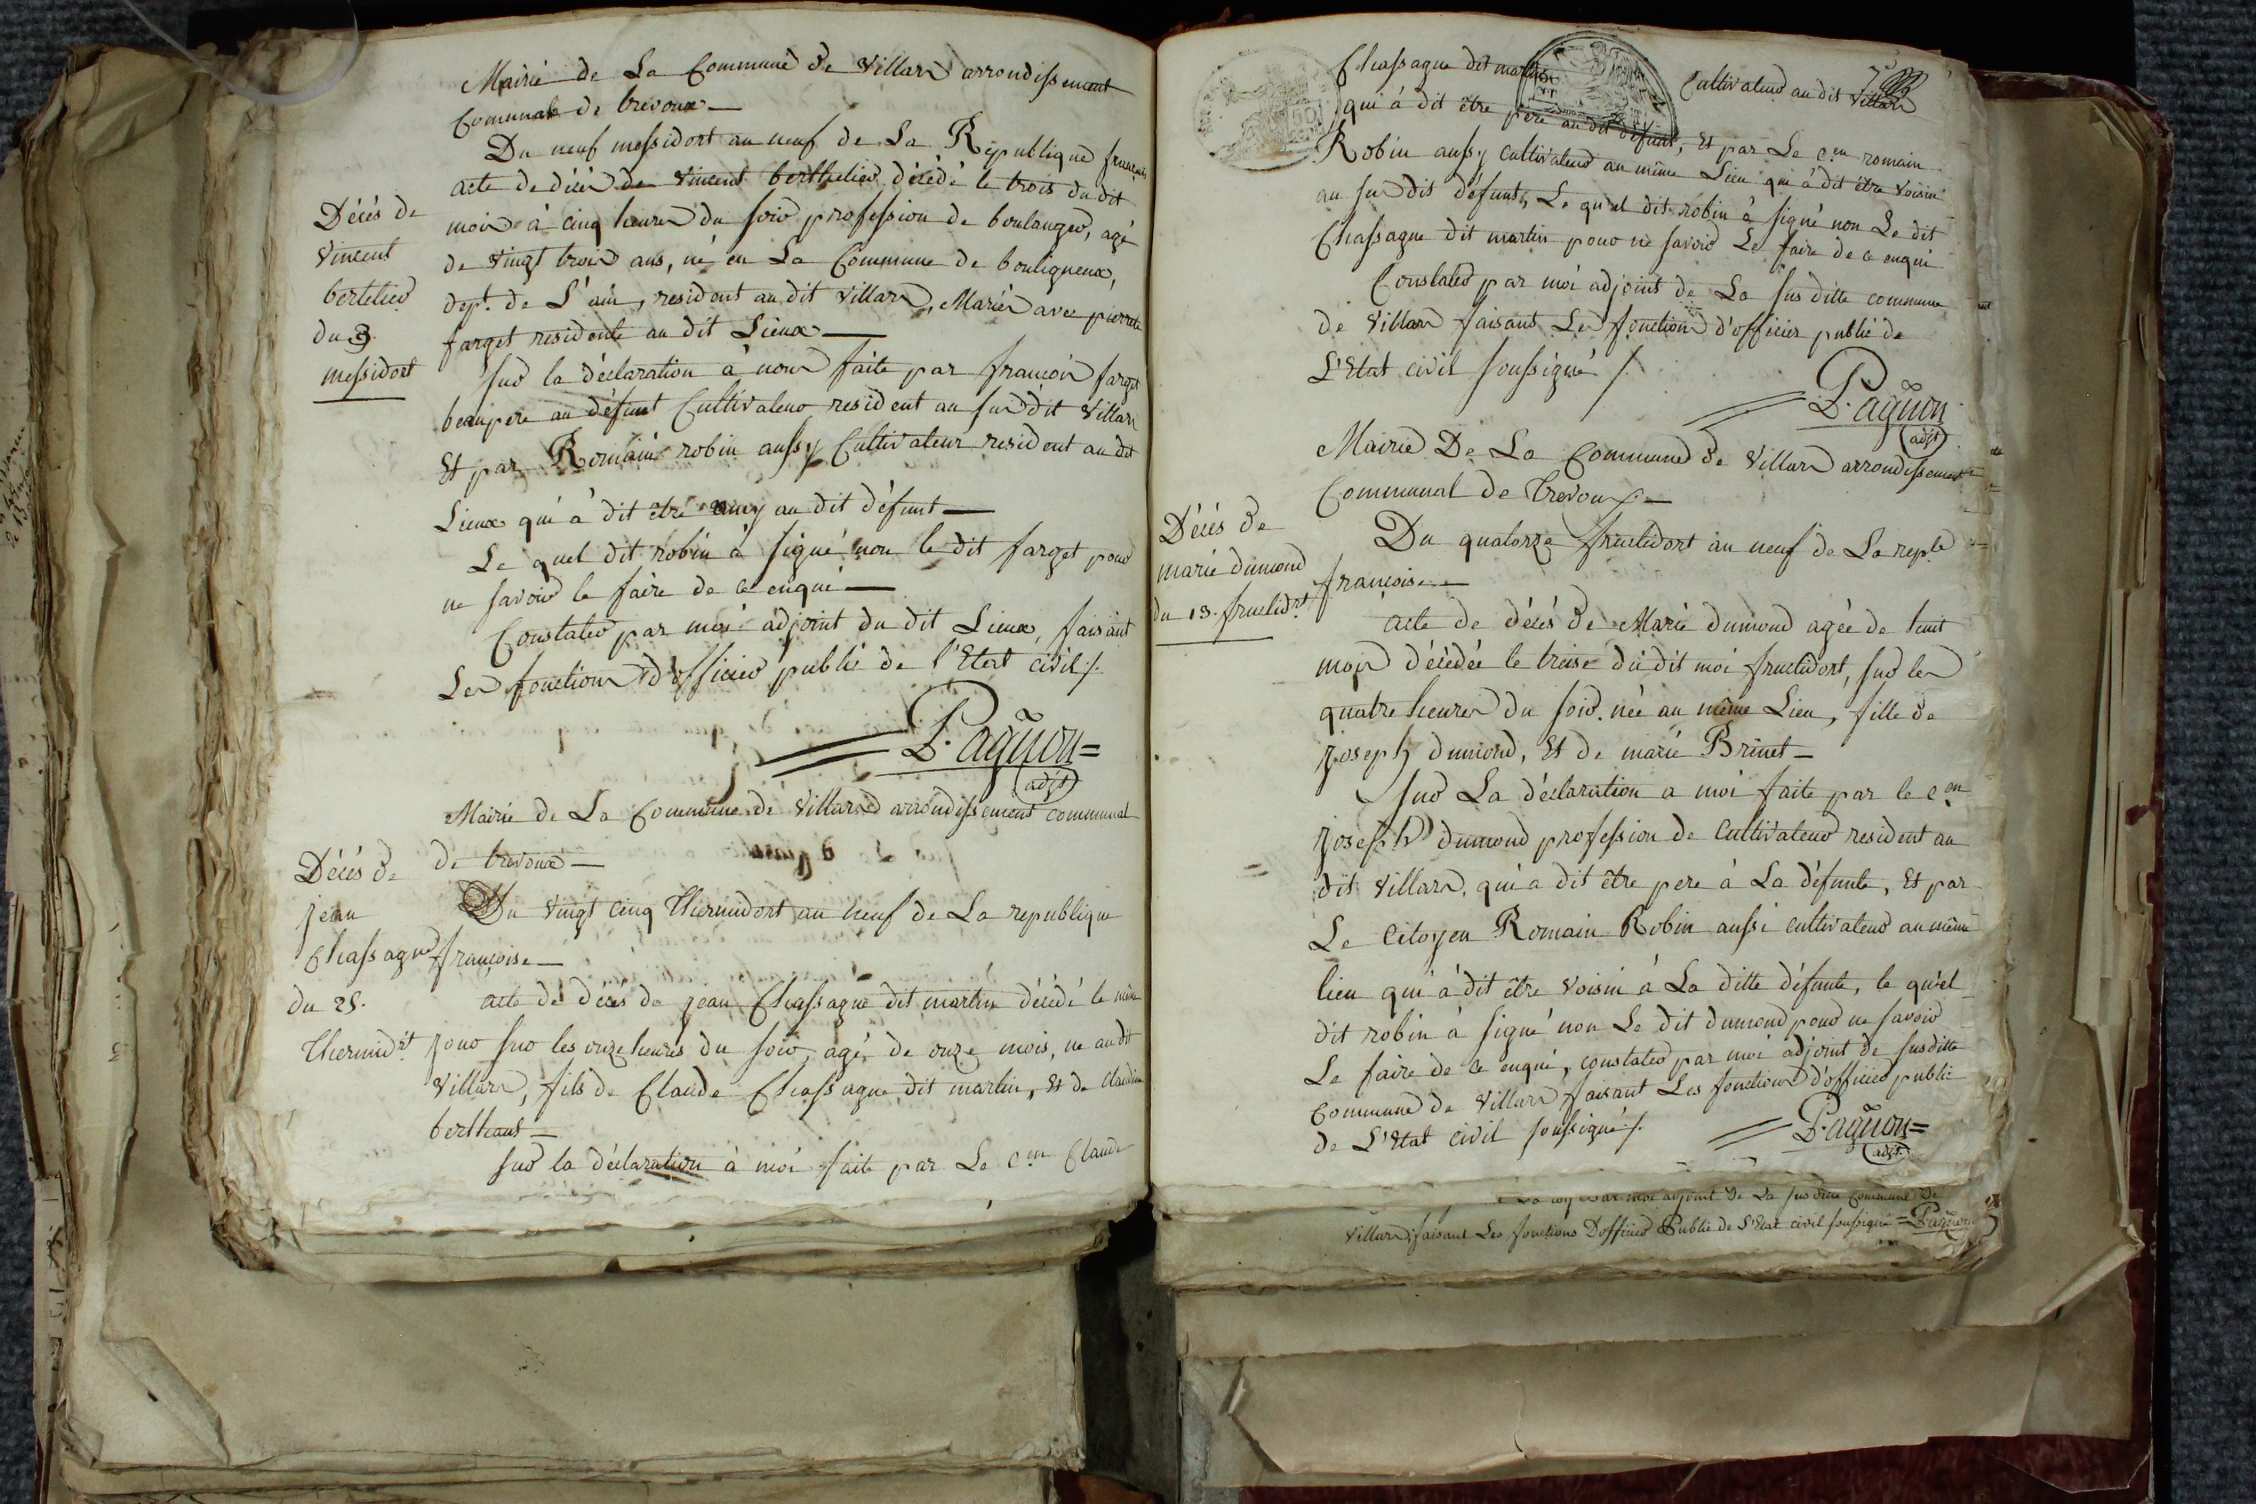 Mairie de La Commune de Villars arrondissement
Communal de trevoux —
Du neuf messidort an neuf de La République francaise
acte de décès de Vincent berthelier décédé le trois du dit
mois à cinq heures du soir profession de boulanger, agé
de vingt trois ans, né en La Commune de bouligneux,
dept. de L'ain, resident au dit Villars, Mariés avec pierrette
farget residente au dit Lieux —
Décés de
Vincent
bertelier
du 3.
messidort
sur la déclaration à nous faite par francois farget
beaupere au défunt Cultivateur resident au sus dit Villars
Et par Romain robin aussy Cultivateur resident au dit
Lieux qui à dit être amy au dit défunt —
Le quel dit robin à signé non le dit farget pour
ne savoir le faire de ce enquis —
Constater par moi adjoint du dit Lieux, faisant
Les fonctions d'officier public de l'Etat civil ./.
P. agnon =
adjt
Mairie de La Commune de Villars arrondissement communal
de trevoux —
Du vingt cinq Thermidort an neuf de La republique
francoise —
Décés de
jean
Chassagne
du 25.
Thermidrt
acte de décés de jean Chassagne dit martin décédé le même
jour sur les onze heures du soir, agé de onze mois, né au dit
Villars, fils de Claude Chassagne dit martin, et de claudine
berthaud —
sur la déclaration à moi faite par Le cen Claude
Chassagne dit martin Cultivateur au dit Villars
qui à dit être pere au dit défunt, Et par Le cen romain
Robin aussy cultivateur au même Lieu qui à dit être voisin
au sus dit défunt, Le quel dit robin à signé non Le dit
Chassagne dit martin pour ne savoir Le faire de ce enquis
Constater par moi adjoint de La sus ditte commune
de Villars faisant Les fonctions d'officier public de
L'Etat civil soussigné ./.
P. agnon
adjt
Mairie De La Commune de Villars arrondissement
Communal de Trevoux —
Du quatorze fructidort an neuf de La repbe
francoise —
Décés de
marie dumond
du 13. fructidrt
acte de décés de Marie dumond agée de huit
mois décédée le treise du dit moi fructidort, sur les
quatre heures du soir. née au même Lieu, fille de
joseph dumond, Et de marie Brunet —
sur La déclaration a moi faite par le cen
joseph dumond profession de Cultivateur resident au
dit Villars, qui a dit être pere à La défunte, Et par
Le Citoyen Romain Robin aussi cultivateur au même
lieu qui à dit être voisin à La ditte défunte, le quel
dit robin à signé non Le dit dumond pour ne savoir
Le faire de ce enquis, constater par moi adjoint de susditte
Commune de Villars faisant Les fonctions d'officier public
de L'Etat civil soussigné ./.
P. agnon =
adjt.
par moi adjoint de La sus ditte Commune de
Villars faisant Les fonctions D'officier Public de L'Etat civil soussigné = P. agnon